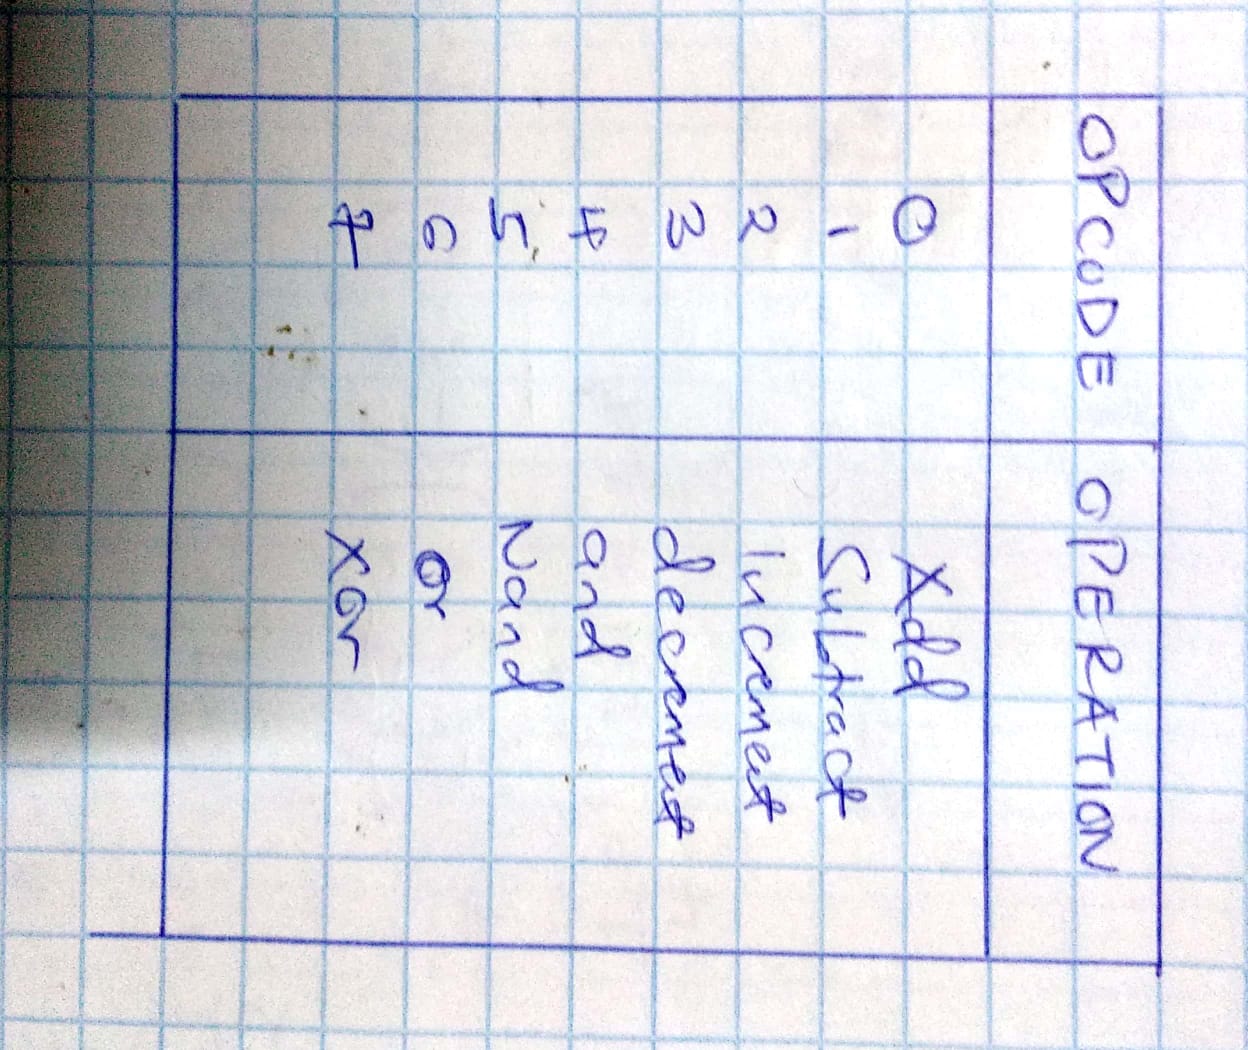 OPCODE OPERATION
0 Add
1 Subtract
2 Increment
3 decrement
4 and
5 Nand
6 or
7 Xor